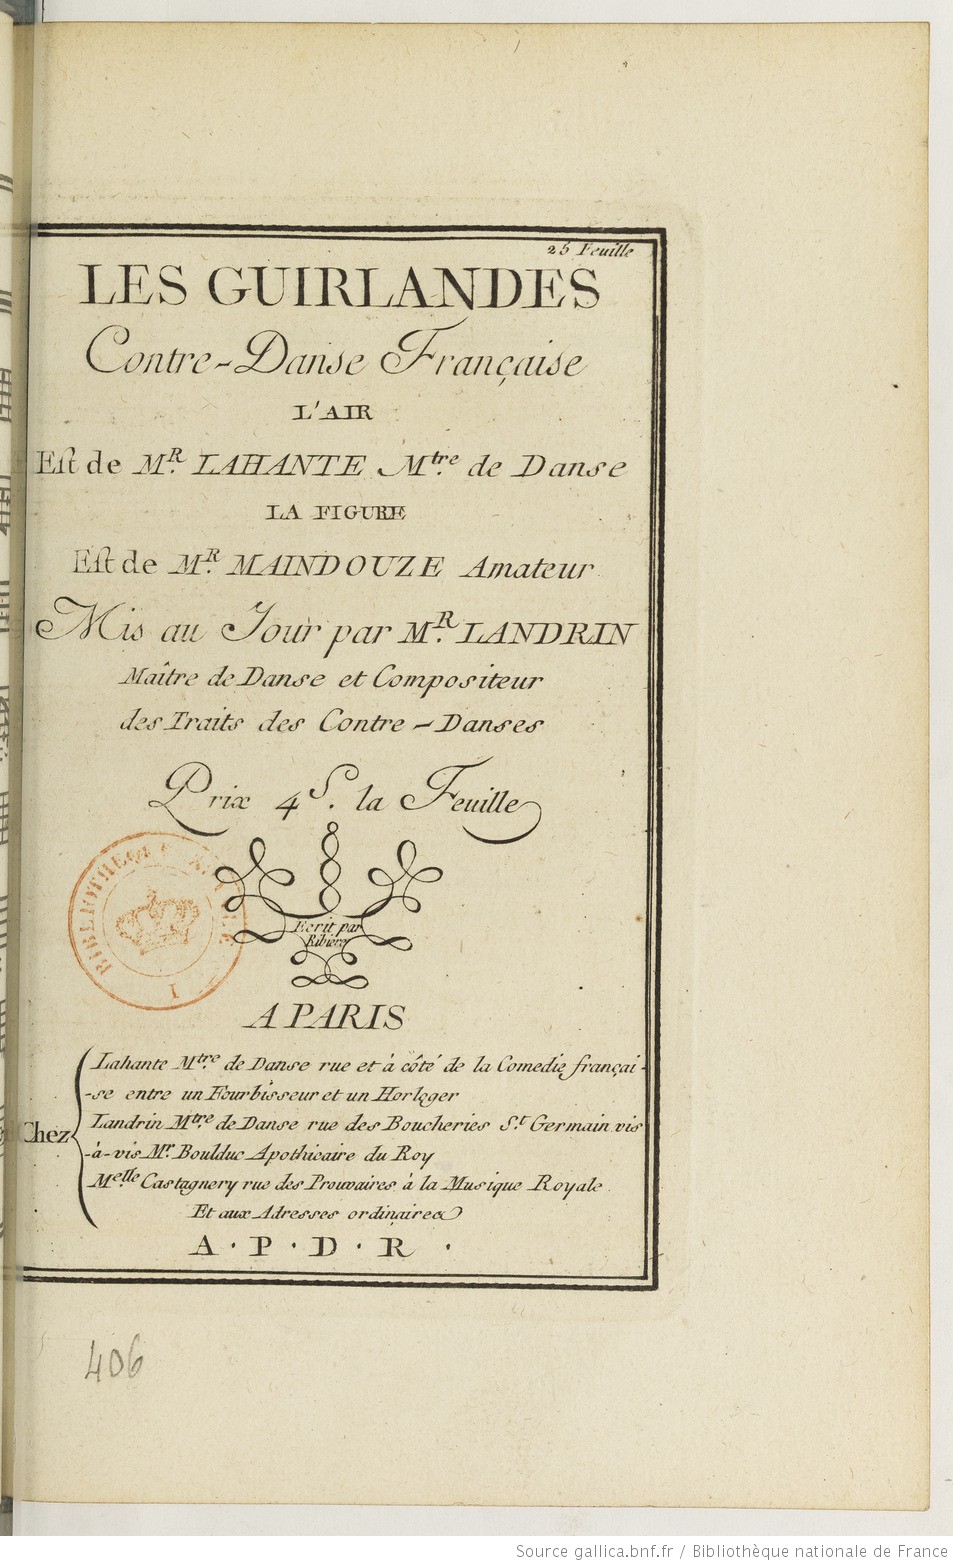 25 Feuille
LES GUIRLANDES
Contre-Danse Française
L'AIR
Est de M.R LAHANTE M.tre de Danse
LA FIGURE
Est de M.R MAINDOUZE Amateur
Mis au Jour par M.R LANDRIN
Maître de Danse et Compositeur
des Traits des Contre-Danses
Prix 4 S. la Feuille
Ecrit par
Ribiere
A PARIS
Chez
Lahante M.tre de Danse rue et à côté de la Comedie françai-
-se entre un Fourbisseur et un Horloger
Landrin M.tre de Danse rue des Boucheries S.t Germain vis
-à-vis M.r Boulduc Apothicaire du Roy
M.elle Castagnery rue des Prouvaires à la Musique Royale
Et aux Adresses ordinaires
A . P . D . R .
406
Source gallica.bnf.fr / Bibliothèque nationale de France